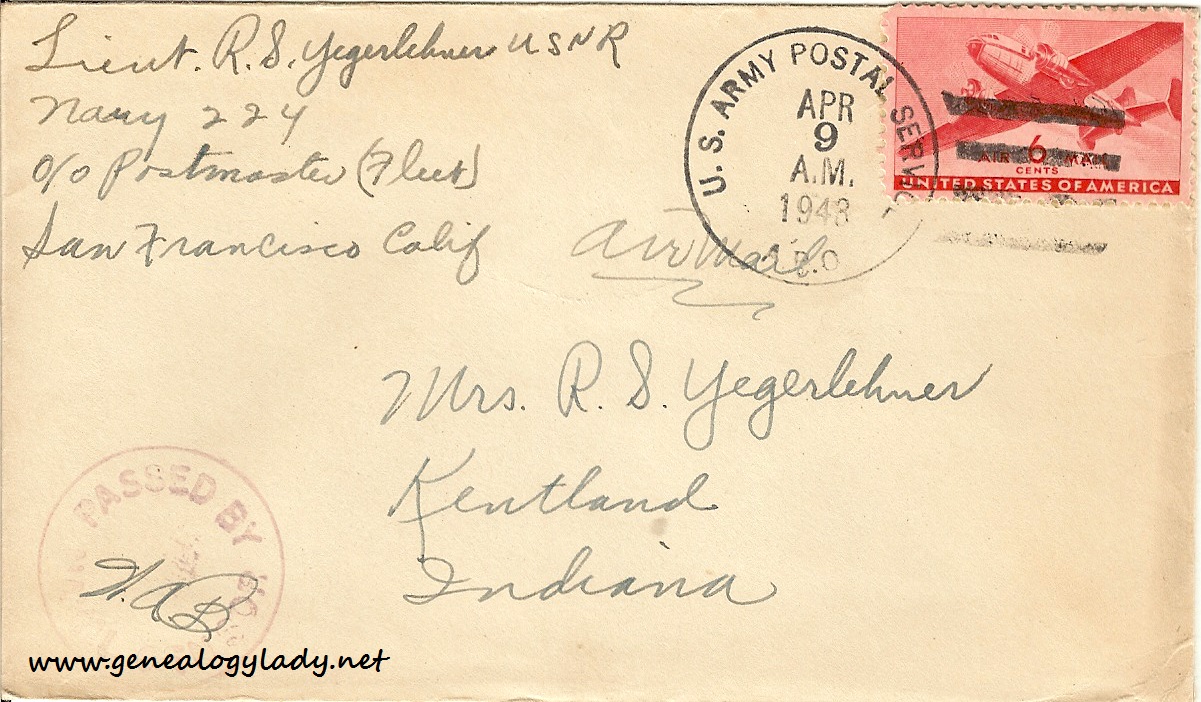 Lieut. R. S. Yegerlehner USNR
Navy 224
c/o Postmaster (Fleet)
San Francisco Calif
Air Mail
U. S. ARMY POSTAL SERVICE
APR
9
A.M.
1943
AIR 6 MAIL
CENTS
UNITED STATES OF AMERICA
Mrs. R. S. Yegerlehner
Kentland
Indiana
PASSED BY
www.genealogylady.net